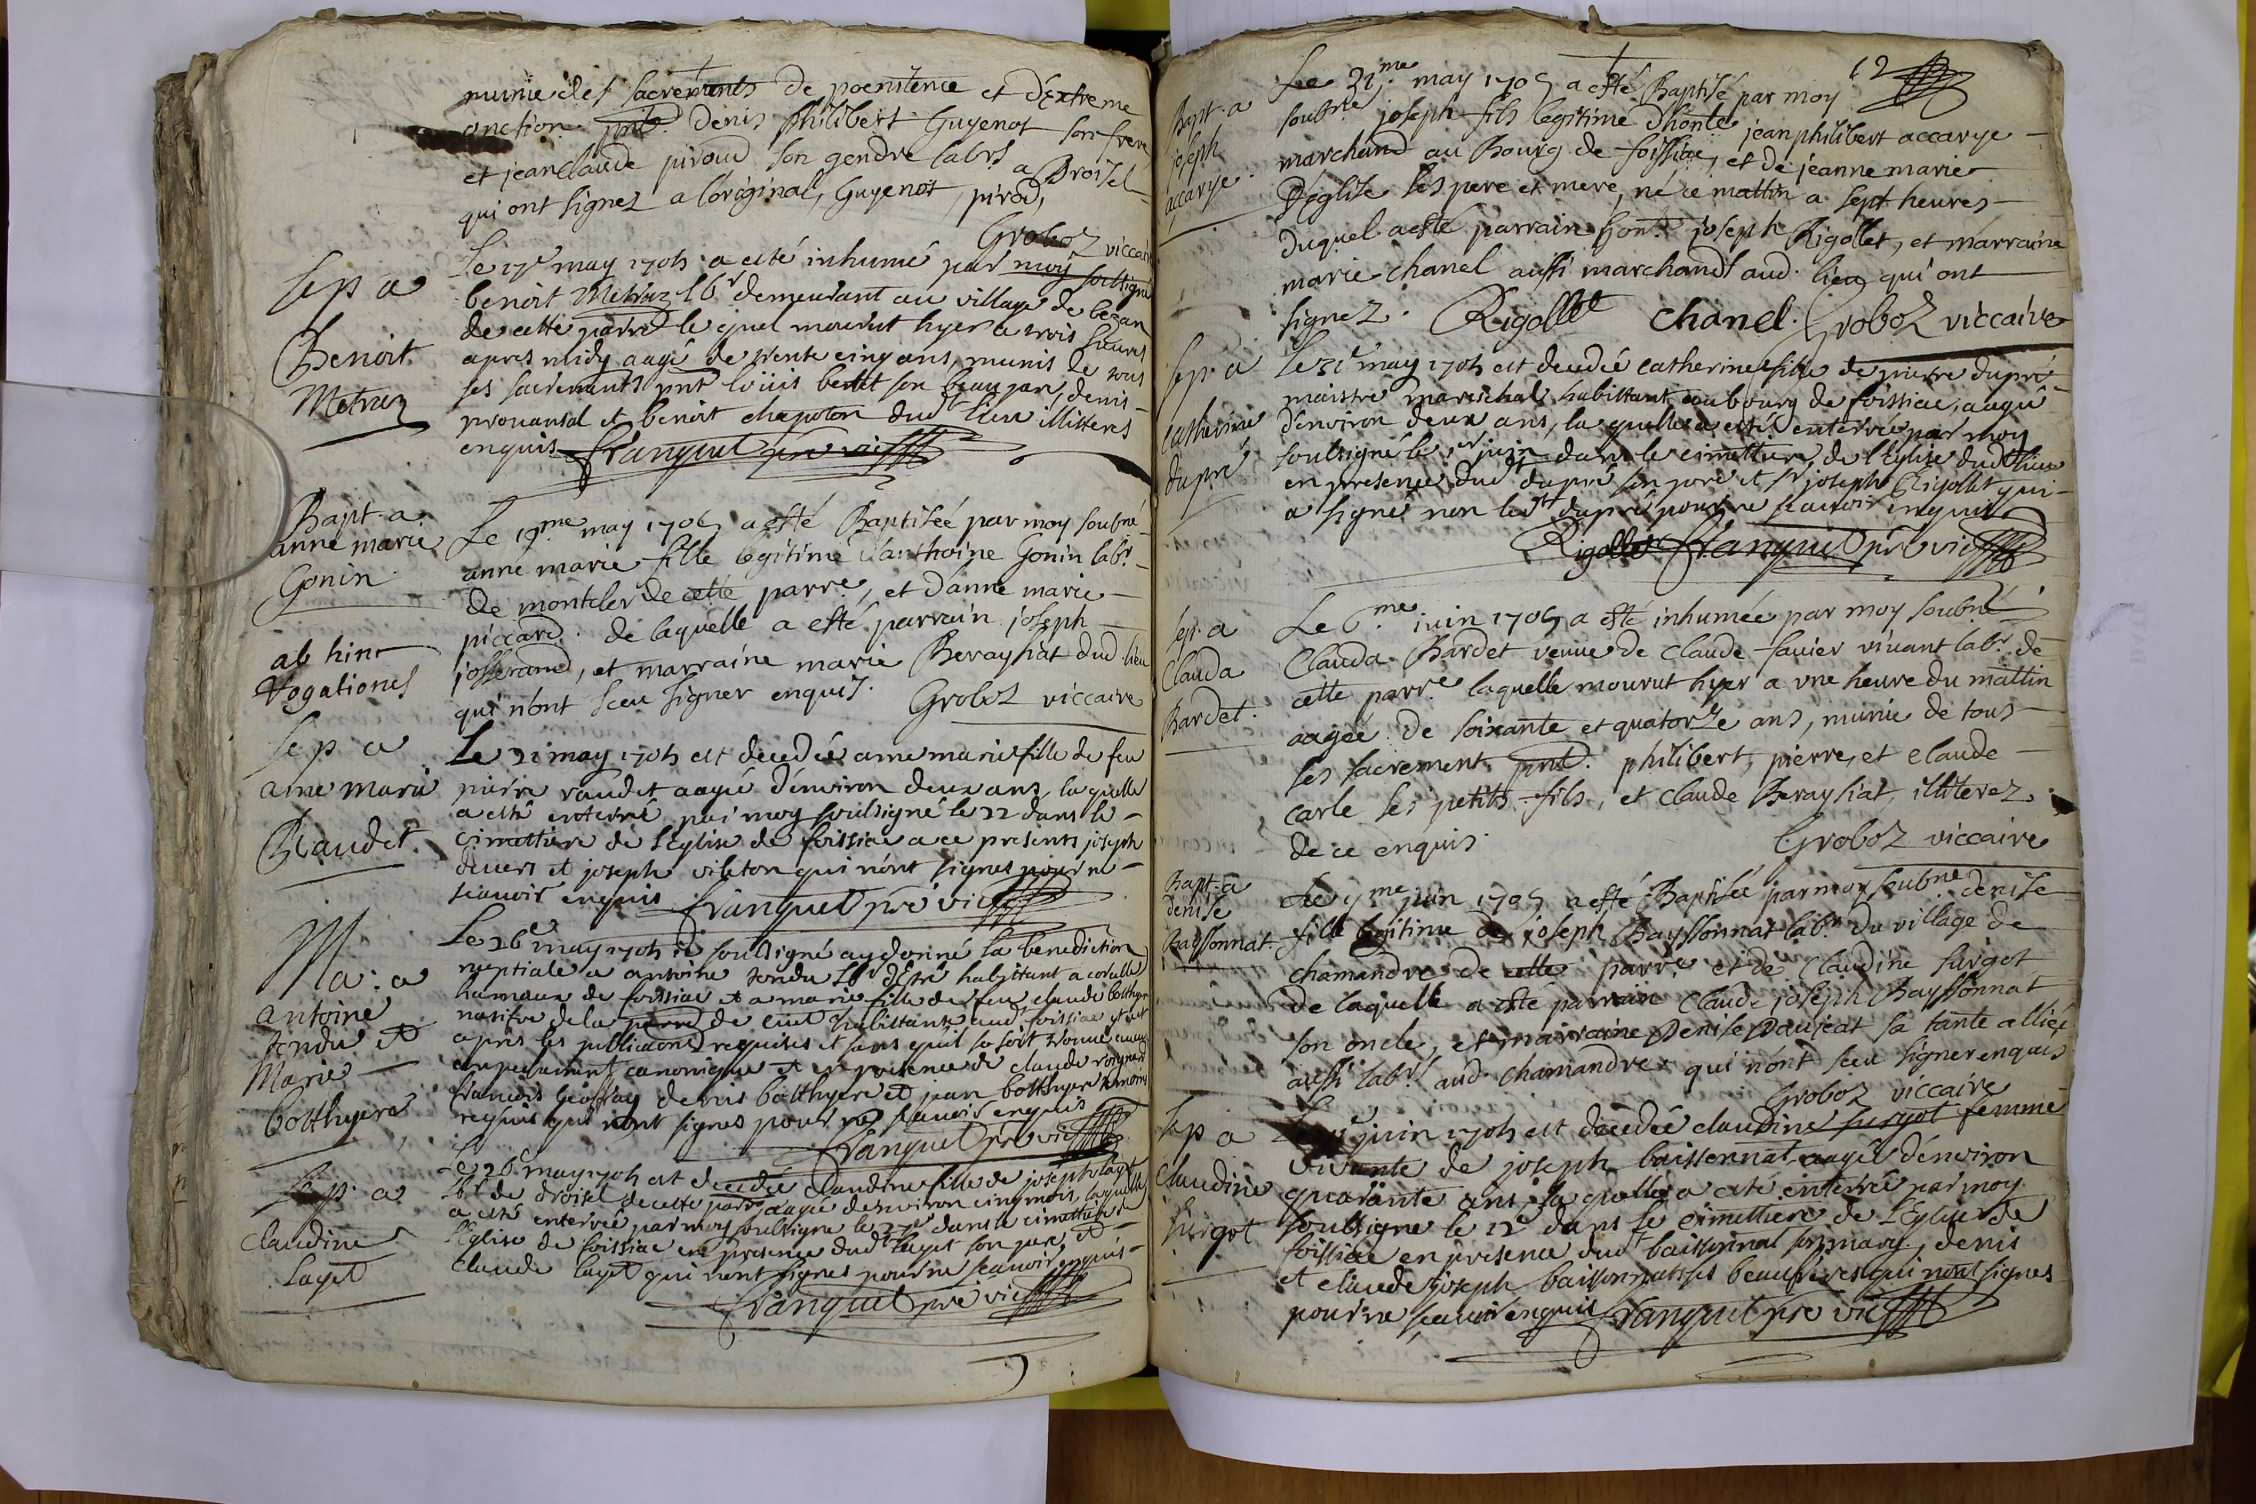 munie des sacrements de poenitence et d'Extreme
onction. pnt. denis philibert Guyenot son frere
et jean claude piroud son gendre labrs a Broisel
qui ont signez a l'original, Guyenot, piroud,
Groboz viccaire
Sep. a
Benoit
Metraz
Le 17e may 1705 a esté inhumé par moy soussigné
benoit Metraz lbr demeurant au village de
de cette parre le quel mourut hyer a trois heures
apres midy aagé de trente cinq ans, munis de tous
ses sacrements pnt loüis son beau pere, denis
prouansal et benoit chapoton dudt lieu illitteres
enquis franquet pre vic
Bapt. a
anne marie
Gonin
Le 19.me may 1705 a esté Baptiseé par moy soubné
anne marie fille legitime d'anthoine Gonin labr.
de montcler de cette parre, et d'anne marie
piccard. de laquelle a esté parrain joseph
josserand, et marraine marie Berayhat dud. lieu
qui n'ont sceu signer enquis. Groboz viccaire
ab hinc
Rogationes
Sep. a
anne marie
Raudet
Le 21 may 1705 est decedée anne marie fille de feu
pierre raudet aagée d'environ deux ans, la quelle
a esté enterré par moy soussigné le 22 dans le
cimettiere de l'Eglise de foissiac a ce presents joseph
et joseph vileton qui n'ont signes pour ne
scauoir enquis franquet pre vic
Ma: a
antoine
tendu et
Marie
botthyere
Le 26e may 1705 je soussigné ay donné la benediction
neptiale a antoine tendu habittant a corcelle
hameaux de foissiac et a marie fille de feu claude botthyer
natifve de la parre de habittante audt foissiac et ce
apres les publications requises et sans qu'il se soit trouvé aucun
empechement canonique et en presence de claude
francois geoffray denis botthyere et jean botthyere temoins
requis qui n'ont signes pour ne scauoir enquis
franquet pre vic
Sep. a
Claudine
Layet
Le 26e may 1705 est decedée Claudine fille de joseph layet
lbr de droisel de cette parre aagée d'environ cinq mois, laquelle
a esté enterrée par moy soussigné le 27e dans le cimettiere de
l'Eglise de foissiac en presence dudt layet son pere, et
claude layet qui n'ont signes pour ne scauoir enquis
franquet pre vic
62
Bapt. a
joseph
accarye
Le 31.me may 1705 a esté Baptisé par moy
soubné joseph fils legitime d'honte jean philibert accarye
marchand au Bourg de foissiac, et de jeanne marie
Deglise ses pere et mere, né ce mattin a sept heures
duquel a esté parrain hont. joseph Rigollet, et marraine
marie chanel aussi marchands aud. lieu qui ont
signez. Rigollet chanel. Groboz viccaire
Sep. a
Catherine
dupré
Le 31e may 1705 est decedée catherine fille de pierre dupré
maistre mareschal habittant au bourg de foissiac, aagée
d'environ deux ans, la quelle a esté enterrée par moy
soussigné le 1er juin dans le cimettiere de l'Eglise dudt lieu
en presence dudt dupré son pere et Sr joseph Rigollet qui
a signé non ledt dupré pour ne scauoir enquis
Rigollet franquet pre vic
Sep. a
Clauda
Bardet.
Le 6.me juin 1705 a esté inhumée par moy soubné
Clauda Bardet veuue de claude favier viuant labr. de
cette parre. laquelle mourut hyer a vne heure du mattin
aagée de soixante et quatorze ans, munie de tous
ses sacrement. pnt. philibert, pierre, et claude
carle ses petits-fils, et claude Berayhat, illiterez
de ce enquis. Groboz viccaire
Bapt. a
denise
Bayssonnat.
Le 9.me juin 1705 a esté Baptisée par moy soubné denise
fille legitime de joseph Bayssonnat labr. du village de
chamandre de cette parre. et de Claudine surgot
de laquelle a esté parrain Claude joseph Bayssonnat
son oncle, et marraine Denise Daujeat sa tante alliée
aussi labrs. aud. chamandre qui n'ont sceu signer enquis
Groboz viccaire
Sep. a
Claudine
surgot
juin 1705 est decedée claudine surgot femme
vivante de joseph baissonnat aagée d'environ
quarante ans, la quelle a esté enterrée par moy
soussigné le 12e dans le cimettiere de l'Eglise de
foissiac en presence dudt baissonnat son mary, denis
et claude joseph baissonnat ses beaufreres qui n'ont signes
pour ne scauoir enquis franquet pre vic